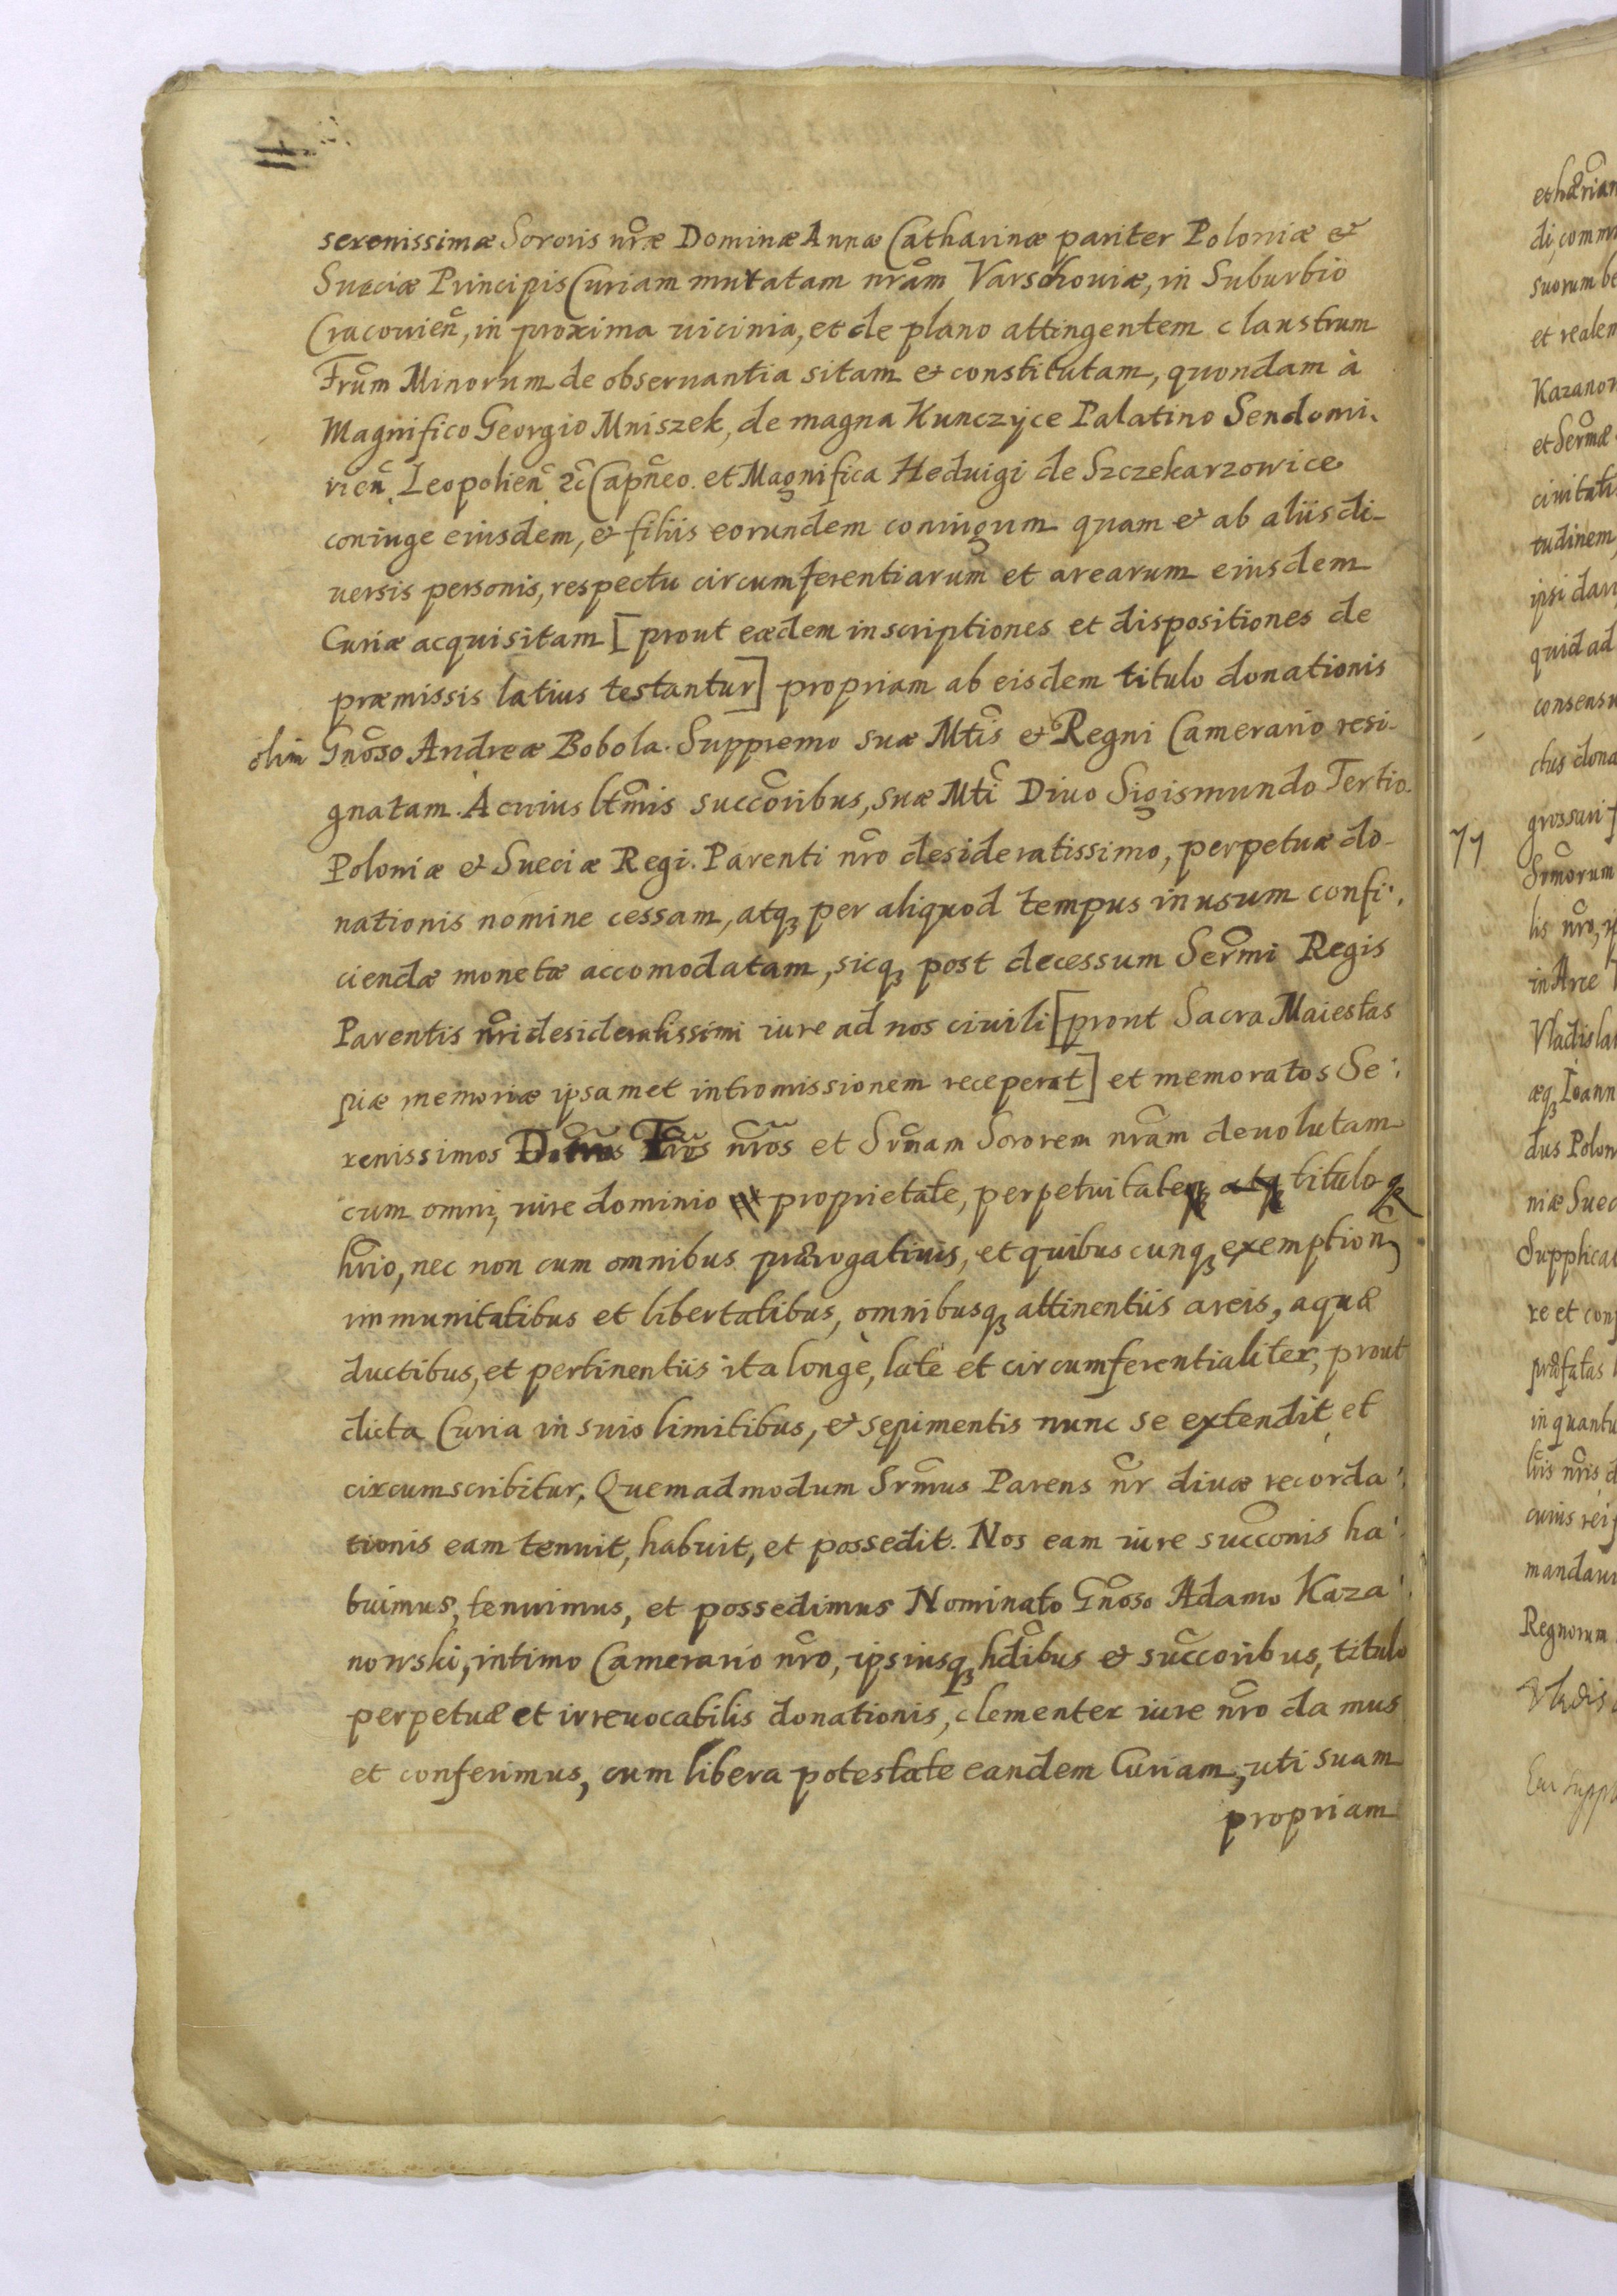 serenissimæ Sororis nr̃æ Dominæ Annæ Catharinæ pariter Poloniæ &
Sueciæ Principis Curiam muratam nrãm Varschouiæ, in Suburbio
Cracouieñ, in proxima vicinia, et de plano attingentem claustrum
Frũm Minorum de obseruantia sitam & constitutam, quondam à
Magnifico Georgio Mniszek, de magna Kunczyce Palatino Sendomi-
rieñ Leopolieñ &c̃ Capñeo. et Magnifica Heduigi de Szczekarzowice
coniuge eiusdem, & filiis eorundem coniugum quam & ab aliis di-
uersis personis, respectu circumferentiarum et arearum eiusdem
Curiæ acquisitam [prout eædem inscriptiones et dispositiones de
præmissis latius testantur] propriam ab eisdem titulo donationis
olim Gnõso Andreæ Bobola. Suppremo suæ Mtĩs & Regni Camerario resi-
gnatam. A cuius ltm̃is succõribus, suæ Mtĩ Diuo Sigismundo Tertio
Poloniæ & Sueciæ Regi. Parenti nrõ desideratissimo, perpetuæ do-
nationis nomine cessam, atq₃ per aliquod tempus in usum confi-
ciendæ monetæ accomodatam, sicq₃ post decessum Serm̃i Regis
Parentis nrĩ desideratissimi iure ad nos ciuili [prout Sacra Maiestas
piæ memoriæ ipsamet intromissionem receperat] et memoratos Se-
renissimos Dom̃os Frẽs nrõs et Srm̃am Sororem nrãm deuolutam
cum omni, iure dominio et proprietate, perpetuitateq₃ atq₃ titulo q₃
hrĩo, nec non cum omnibus prærogatiuis, et quibuscunq₃ exemption₃
immunitatibus et libertatibus, omnibusq₃ attinentiis areis, aquæ
ductibus, et pertinentiis ita longè, latè et circumferentialiter, prout
dicta Curia in suis limitibus, & sępimentis nunc se extendit et
circumscribitur, Quemadmodum Srm̃us Parens nr̃ diuæ recorda-
tionis eam tenuit, habuit, et possedit. Nos eam iure succõnis ha-
buimus, tenuimus, et possedimus Nominato Gnõso Adamo Kaza-
nowski, intimo Camerario nrõ, ipsiusq₃ hdĩbus & succõribus, titulo
perpetuæ et irreuocabilis donationis, clementer iure nrõ damus
et conferimus, cum libera potestate eandem Curiam, uti suam
propriam
et hærian
di, comm
suorum be
et realem
Kazanow
et Serm̃æ
ciuitati
tudinem
ipsi dari
quid ad
consensu
ctus dona
grossari
Srm̃orum
lis nrõ,
in Arce
Vladisla
æq₃ Ioann
dus Polon
niæ Suec
Supplica
re et con
præfatas
in quantu
nrĩs
cuius rei
mandaui
Regnorum
Vladis